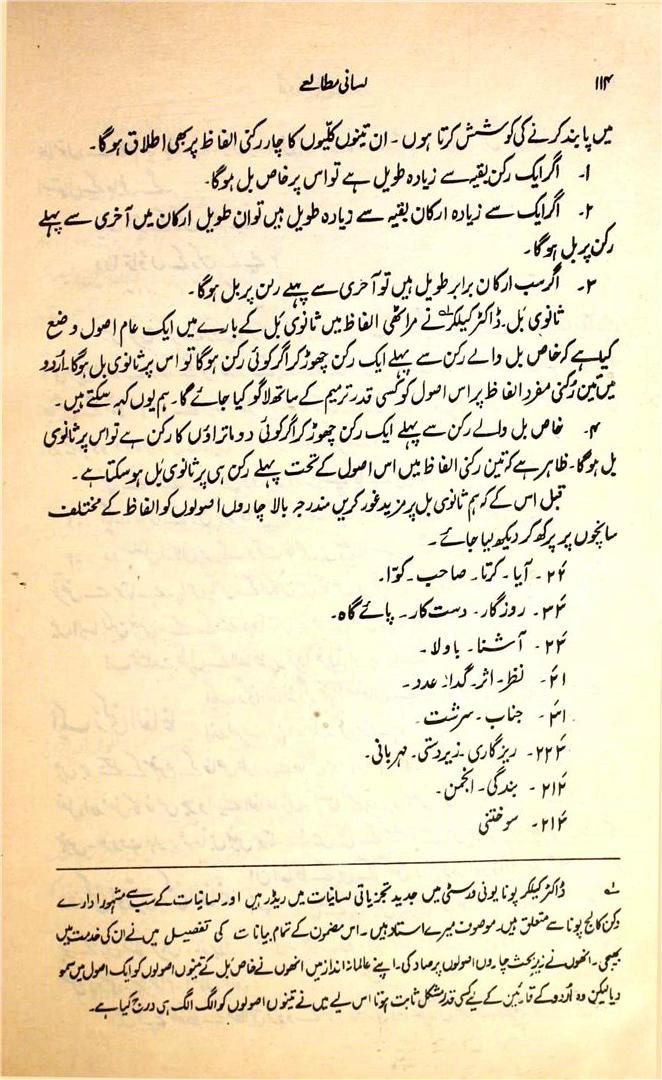 ۱۱۴
لسانی مطالعے
میں پابند کرنے کی کوشش کرتا ہوں ۔ ان تینوں کلّیوں کا چار رکنی الفاظ پر بھی اطلاق ہوگا۔
۱۔ اگر ایک رکن بقیہ سے زیادہ طویل ہے تو اس پر خاص بل ہوگا۔
۲۔ اگر ایک سے زیادہ ارکان بقیہ سے زیادہ طویل ہیں تو ان طویل ارکان میں آخری سے پہلے
رکن پر بل ہوگا۔
۳۔ اگر سب ارکان برابر طویل ہیں تو آخری سے پہلے رکن پر بل ہوگا۔
ثانوی بَل۔ ڈاکٹر کیلکر لے نے مراٹھی الفاظ میں ثانوی بَل کے بارے میں ایک عام اصول وضع
کیا ہے کہ خاص بل والے رکن سے پہلے ایک رکن چھوڑ کر اگر کوئی رکن ہوگا تو اس پر ثانوی بل ہوگا۔ اُردو
میں تین رکنی مفرد الفاظ پر اس اصول کو کسی قدر ترمیم کے ساتھ لاگو کیا جائے گا۔ ہم یوں کہہ سکتے ہیں۔
۴۔ خاص بل والے رکن سے پہلے ایک رکن چھوڑ کر اگر کوئی دو ماتراؤں کا رکن ہے تو اس پر ثانوی
بل ہوگا۔ ظاہر ہے کہ تین رکنی الفاظ میں اس اصول کے تحت پہلے رکن ہی پر ثانوی بَل ہوسکتا ہے۔
قبل اس کے کہ ہم ثانوی بل پر مزید غور کریں مندرجہ بالا چاروں اصولوں کو الفاظ کے مختلف
سانچوں پر پرکھ کر دیکھ لیا جائے۔
۲۲۔ آیا۔ کرتا۔ صاحب۔ کوّا۔
۳۳۔ روزگار۔ دست کار۔ پائے گاہ۔
۲۳۔ آشنا۔ باولا۔
۲۱۔ نظر۔ اثر۔ گدا۔ عدد۔
۳۱۔ جناب۔ سرشت۔
۲۲۳۔ ریزگاری۔ زبردستی۔ مہربانی۔
۲۱۲۔ بندگی۔ انجمن۔
۲۱۳۔ سوختنی
لے ڈاکٹر کیلکر پونا یونی ورسٹی میں جدید تجزیاتی لسانیات میں ریڈر ہیں اور لسانیات کے سب سے مشہور ادارے
دکن کالج پونا سے متعلق ہیں۔ موصوف میرے استاد ہیں۔ اس مضمون کے تمام بیانات کی تفصیل میں نے ان کی خدمت میں
بھیجی۔ انھوں نے زیر بحث چاروں اصولوں پر صاد کی۔ اپنے عالمانہ انداز میں انھوں نے خاص بل کے تینوں اصولوں کو ایک اصول میں سمو
دیا لیکن وہ اُردو کے قارئین کے لیے کسی قدر مشکل ثابت ہوتا اس لیے میں نے تینوں اصولوں کو الگ الگ ہی درج کیا ہے۔